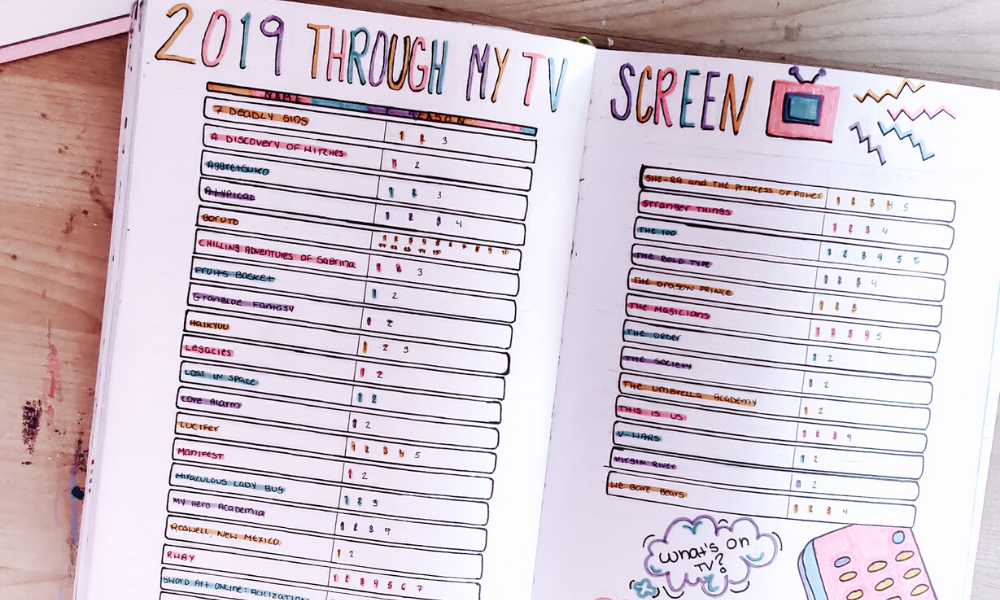 2019 THROUGH MY TV
NAME SEASON
7 DEADLY SINS 1 2 3
A DISCOVERY OF WITCHES 1 2
AGGRETSUKO 1 2 3
ATYPICAL 1 2 3 4
BORUTO
CHILLING ADVENTURES OF SABRINA 1 2 3
FRUITS BASKET 1 2
GRANBLUE FANTASY 1 2
HAIKYUU 1 2 3
LEGACIES 1 2
LOST IN SPACE 1 2
LOVE ALARM 1 2
LUCIFER 1 2 3 4 5
MANIFEST 1 2
MIRACULOUS LADY BUG 1 2 3
MY HERO ACADEMIA 1 2 3 4
ROSWELL, NEW MEXICO 1 2
RWBY 1 2 3 4 5 6 7
SWORD ART ONLINE: ALICIZATION
SCREEN
SHE-RA AND THE PRINCESS OF POWER 1 2 3 4 5
STRANGER THINGS 1 2 3 4
THE 100 1 2 3 4 5 6
THE BOLD TYPE 1 2 3 4
THE DRAGON PRINCE 1 2 3
THE MAGICIANS 1 2 3 4 5
THE ORDER 1 2
THE SOCIETY 1 2
THE UMBRELLA ACADEMY 1 2
THIS IS US 1 2 3 4
V-WARS 1 2
VIRGIN RIVER 1 2
WE BARE BEARS 1 2 3 4
WHAT'S ON
TV?